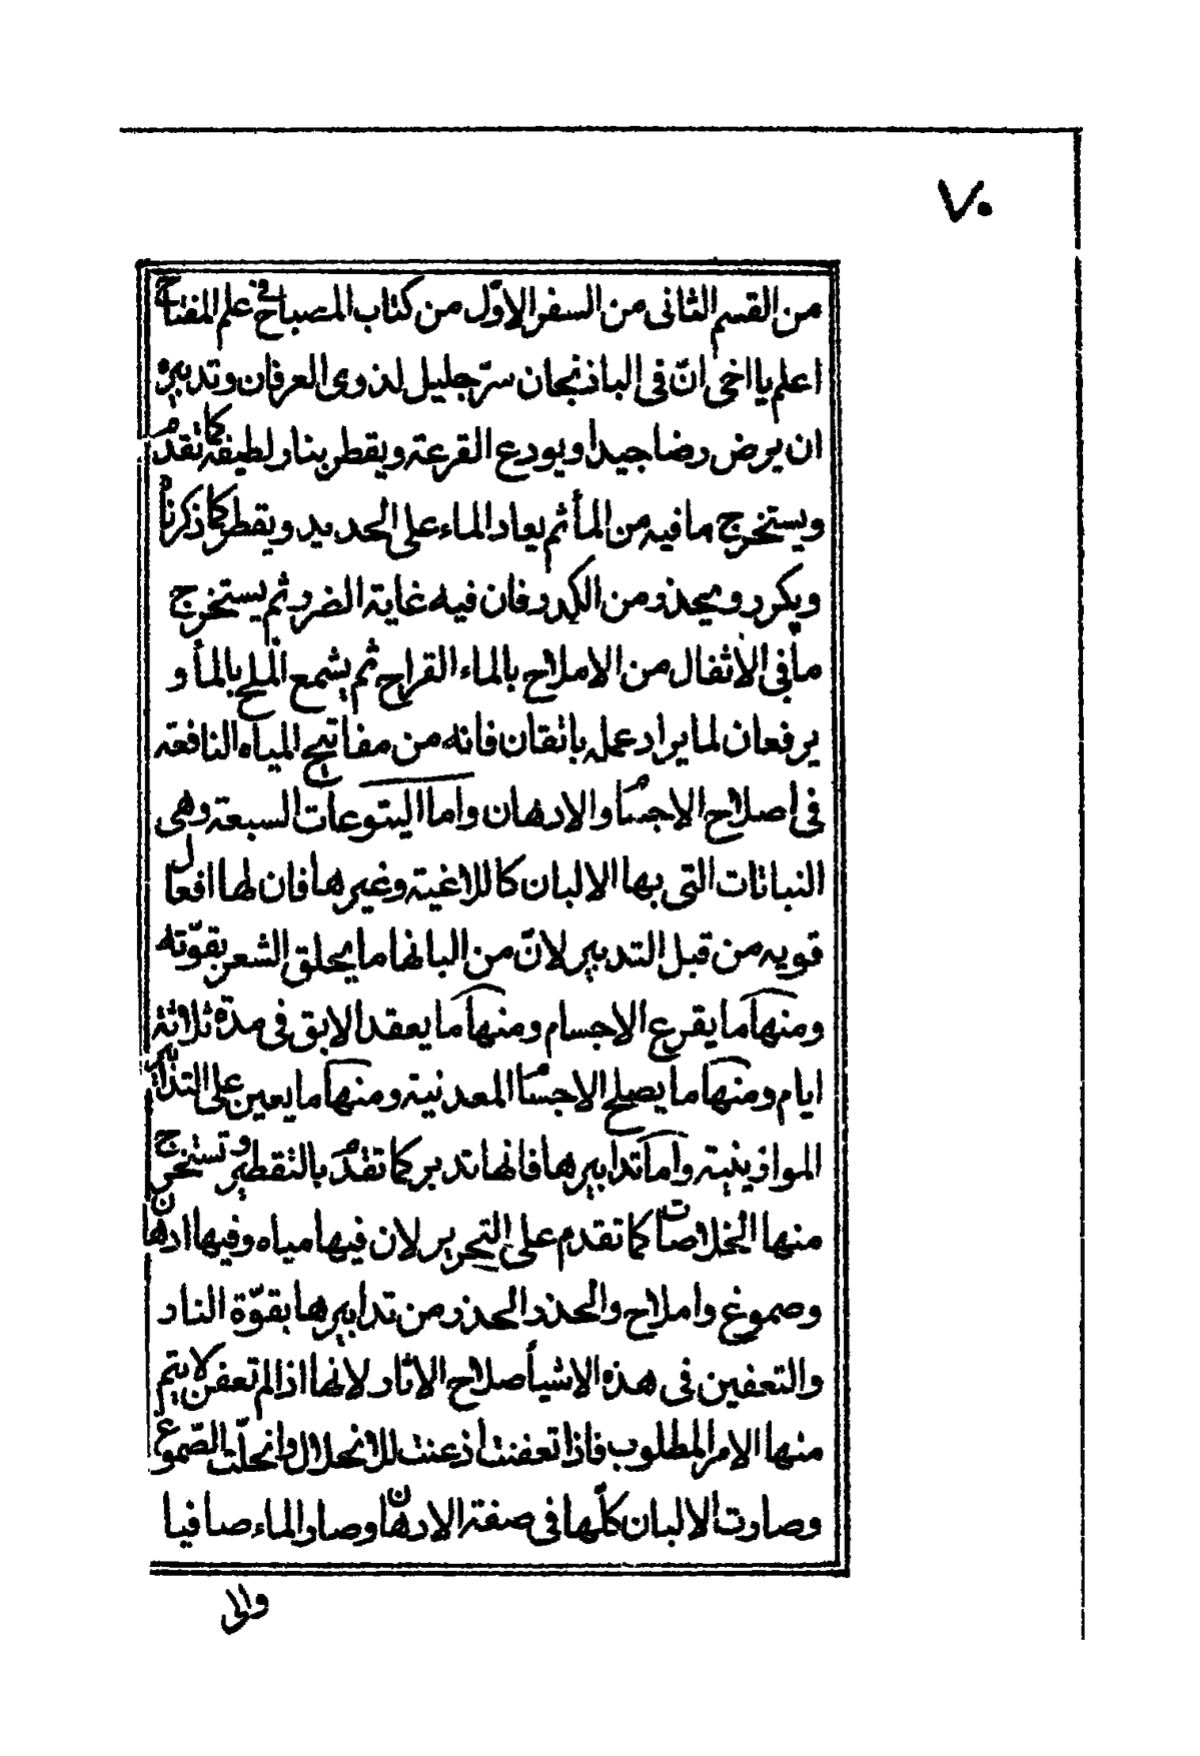 ٧٠
من القسم الثانى من السفر الاوّل من كتاب المصباح فى علم المفتاح
اعلم يا اخى انّ فى الباذنجان سرّ جليل لذوى العرفان وتدبيره
ان يرض رضا جيدا ويودع القرعة ويقطر بنار لطيفة كما تقدم
ويستخرج ما فيه من المأ ثم يعاد الماء على الحديد ويقطر كما ذكرناه
ويكرر ويحذر من الكدر فان فيه غاية الضرر ثم يستخرج
ما فى الأثفال من الاملاح بالماء القراح ثم يشمع الملح بالمأ و
يرفعان لما يراد عمله باتقان فانه من مفاتيح المياه النافعة
فى اصلاح الاجسام والادهان واما اليتوعات السبعة وهى
النباتات التى بها الالبان كاللاغية وغيرها فان لها افعال
قويه من قبل التدبير لانّ من البانها ما يحلق الشعر بقوّته
ومنها ما يقرع الاجسام ومنها ما يعقد الابق فى مدّة ثلاثة
ايام ومنها ما يصلح الاجسام المعدنية ومنها ما يعين على التدابير
الموازينية واما تدابيرها فانها تدبر كما تقدم بالتقطير وتستخرج
منها الخلاصات كما تقدم على التحرير لان فيها مياه وفيها ادهان
وصموغ واملاح والحذر الحذر من تدابيرها بقوّة النار
والتعفين فى هذه الاشيأ صلاح الاثار لانها اذا لم تعفن لا يتم
منها الامر المطلوب فاذا تعفنت اذعنت للانحلال وانحلّت الصّموغ
وصارت الالبان كلّها فى صفة الادهان وصار الماء صافيا
والى